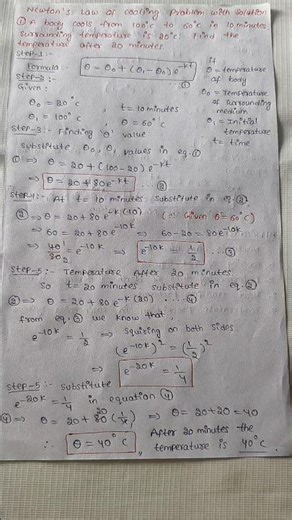 Newton's Law of Cooling Problem with Solution
① A body cools from 100°C to 60°C in 10 minutes
Surrounding temperature is 20°C. Find the
temperature after 20 minutes
Step-1:-
Formula:- θ = θ₀ + (θ₁ - θ₀) e^-kt
if
θ = temperature of body
θ₀ = Temperature of surrounding medium
θ₁ = Initial temperature
t = time
Step-2:-
Given:
θ₀ = 20°C, t = 10 minutes
θ₁ = 100°C θ = 60°C
Step-3:- Finding 'θ' value
substitute θ₀, θ₁ values in eq-①
① ⇒ θ = 20 + (100-20) e^-kt
⇒ θ = 20 + 80 e^-kt ... ②
Step-4:- At t = 10 minutes substitute in eq-②
② ⇒ θ = 20 + 80 e^-k(10) (∵ Given θ = 60°C)
⇒ 60 = 20 + 80 e^-10k ⇒ 60-20 = 80 e^-10k
⇒ 40/80 = e^-10k ⇒ e^-10k = 1/2 ... ③
Step-5:- Temperature After 20 minutes
so t = 20 minutes substitute in eq ②
② ⇒ θ = 20 + 80 e^-k(20) ... ④
from eq. ③ we know that
e^-10k = 1/2 ⇒ squizing on both sides
(e^-10k)² = (1/2)²
⇒ e^-20k = 1/4
Step-5:- substitute
e^-20k = 1/4 in equation ④
④ ⇒ θ = 20 + 80 (1/4) ⇒ θ = 20+20 = 40
∴ θ = 40°C After 20 minutes the
temperature is 40°C